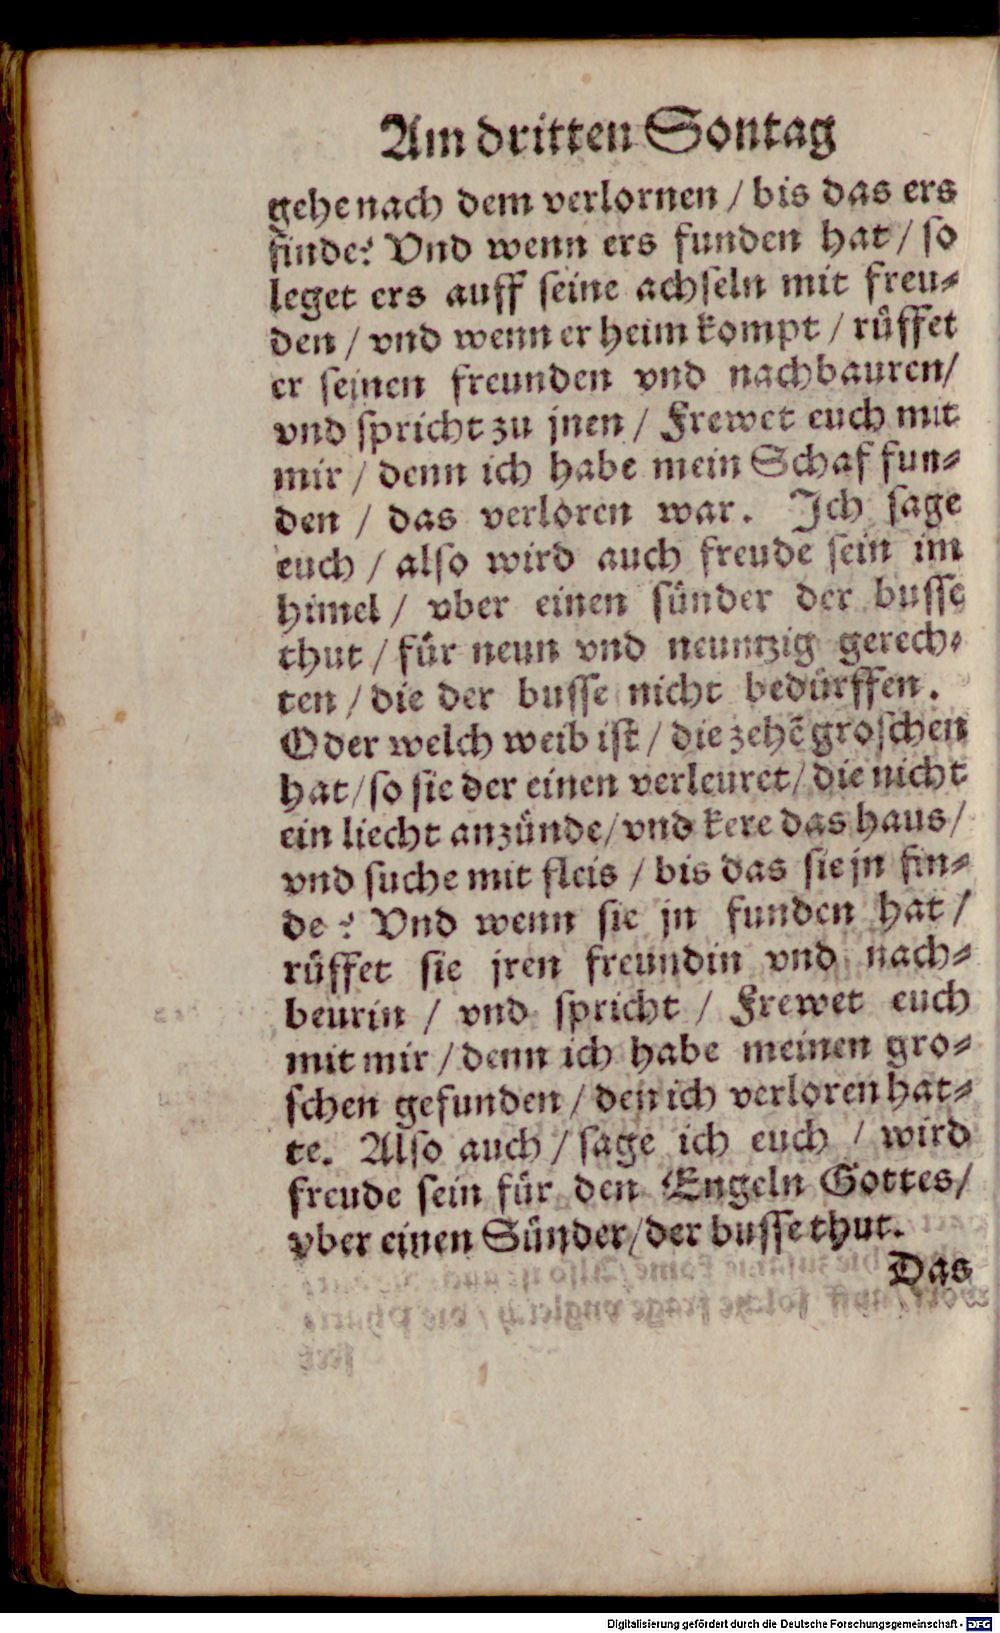 Am dritten Sontag
gehe nach dem verlornen / bis das ers
finde? Vnd wenn ers funden hat / so
leget ers auff seine achseln mit freu⸗
den / vnd wenn er heim kompt / ruͤffet
er seinen freunden vnd nachbauren/
vnd spricht zu jnen / Frewet euch mit
mir / denn ich habe mein Schaf fun⸗
den / das verloren war. Ich sage
euch / also wird auch freude sein im
himel / vber einen suͤnder der busse
thut / fuͤr neun vnd neuntzig gerech⸗
ten / die der busse nicht beduͤrffen.
Oder welch weib ist / die zehẽ groschen
hat/ so sie der einen verleuret/ die nicht
ein liecht anzuͤnde/ vnd kere das haus/
vnd suche mit fleis / bis das sie jn fin⸗
de? Vnd wenn sie jn funden hat /
ruͤffet sie jren freundin vnd nach⸗
beurin / vnd spricht / Frewet euch
mit mir / denn ich habe meinen gro⸗
schen gefunden / den ich verloren hat⸗
te. Also auch / sage ich euch / wird
freude sein fuͤr den Engeln Gottes/
vber einen Suͤnder/ der busse thut.
Das
Digitalisierung gefördert durch die Deutsche Forschungsgemeinschaft - DFG